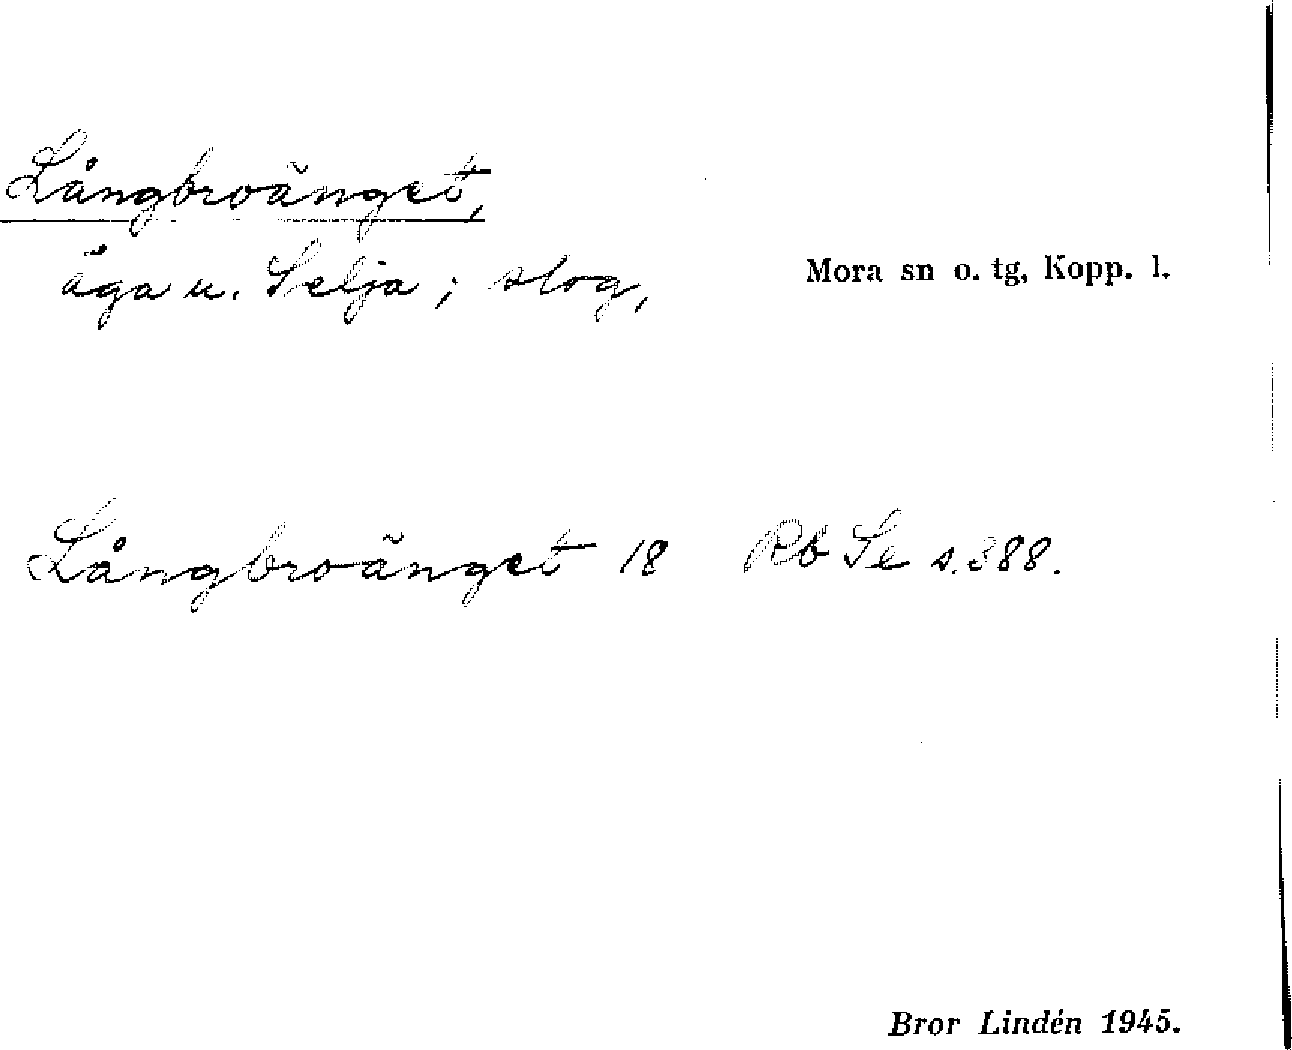 Långbroänget,
äga u. Selja; slog,
Mora sn o. tg, Kopp. l.
Långbroänget 18 Rb Se s. 388.
Bror Lindén 1945.